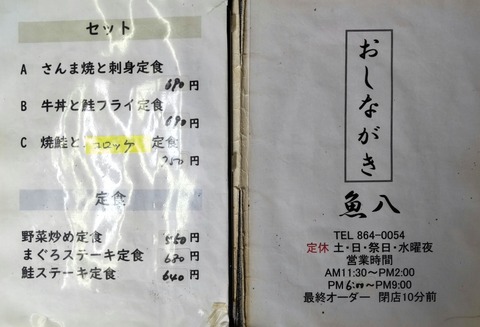 セット
A さんま焼と刺身定食
690円
B 牛丼と鮭フライ定食
690円
C 焼鮭と、コロッケ 定食
750円
定食
野菜炒め定食 560円
まぐろステーキ定食 680円
鮭ステーキ定食 640円
おしながき
魚八
TEL 864-0054
定休 土・日・祭日・水曜夜
営業時間
AM11:30～PM2:00
PM 6:00～PM9:00
最終オーダー 閉店10分前